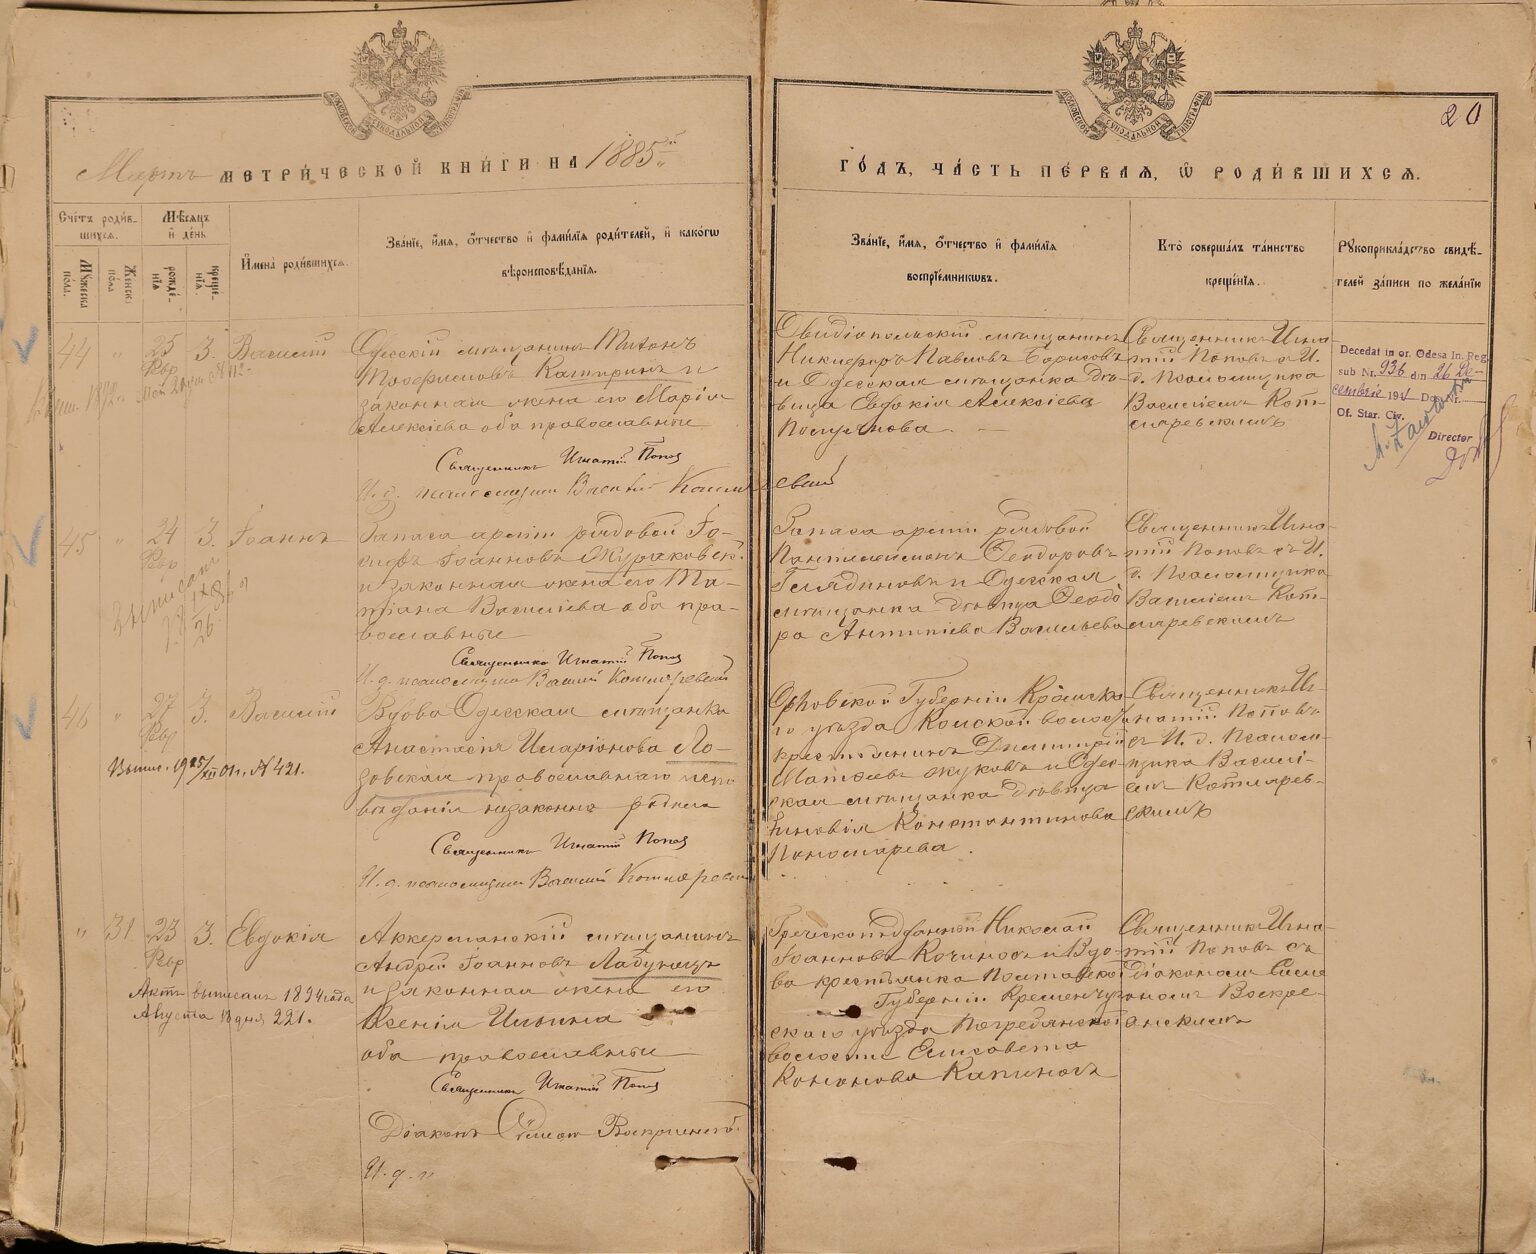 20
Мартъ МЕТРИ́ЧЕСКОЙ КНИ́ГИ НА 1885й
ГО́ДЪ, ЧА́СТЬ ПЕ́РВАЯ, Ѽ РОДИ́ВШИХСЯ.
Сче́тъ роди́в-
шихся.
Му́жеска
по́ла.
Же́нска
по́ла
Мѣ́сяцъ
и де́нь
рожде́-
нїя
креще́-
нїя.
И҆мена̀ роди́вшихся.
Зва́нїе, и҆́мя, ѻ҆́тчество и҆ фами́лїя роди́телей, и҆ како́гѡ
вѣроисповѣ́данїя.
Зва́нїе, и҆́мя, ѻ҆́тчество и҆ фами́лїя
воспрїе́мникѡвъ.
Кто̀ соверша́лъ та́инство
креще́нїя.
Рꙋкоприкла́дство свидѣ́-
телей за́писи по жела́нїю
44
"
25
Fвр
3.
Василій
Одесскій мѣщанинъ Титонъ
законная жена его Марія
Алексіева оба православные
Священникъ Игнатій Попов
И. д. псаломщика Василій Котляревскій
Овидіопольскій мѣщанинъ
Никифоръ Павловъ Борисовъ
и Одесская мѣщанка дѣ-
вица Евдокія Алексіева
Священникъ Игна-
тій Поповъ съ И.
д. Псаломщика
Василіемъ Кот-
ляревскимъ
Decedat in or. Odesa In. Reg.
sub Nr. 936 din 26 De-
cembrie 194 Dos. Nr.
Of. Star. Civ.
Director
45
"
24
Fвр
3.
Іоаннъ
Запаса арміи рядовой Іо-
сифъ Іоанновъ Жураковск.
и законная жена его Та-
тіана Василіева оба пра-
вославные
Священникъ Игнатій Попов
И. д. псаломщика Василій Котляревскій
Запаса арміи рядовой
Пантелеимонъ Ѳеодоровъ
Гслядиновъ и Одесская
мѣщанка дѣвица Ѳеодо
ра Антипіева Васильева
Священникъ Игна-
тій Поповъ съ И.
д. Псаломщика
Василіемъ Кот-
ляревскимъ
46
"
27
Fвр
3.
Василій
Выпис. 19 25/XII 01 г. № 421.
Вдова Одесская мѣщанка
Анастасія Иларіонова Ло-
зовская православнаго испо
вѣданія незаконно родила
Священникъ Игнатій Попов
И. д. псаломщика Василій Котляревскій
Орловской Губерніи Кромска-
го уѣзда волости
крестьянинъ Дмитрій
Матѳеевъ Жуковъ и Одес-
ская мѣщанка дѣвица
Зиновія Константинова
Пономарева.
Священникъ Иг-
натій Поповъ
съ И. д. Псалом-
щика Василі-
емъ Котляре-
вскимъ
"
31
23
Fвр
3.
Евдокія
Актъ выписанъ 1894 года
Августа 18 дня 221.
Аккерманскій мѣщанинъ
Андрей Іоанновъ Лабунецъ
и законная жена его
Ксенія Ильина
оба православные
Священникъ Игнатій Попов
Діаконъ Симеон Воскресенскій
И. д. п
Греческоподданный Николай
Іоанновъ и Вдо-
ва крестьянка Полтавской
Губерніи Кременчуг-
скаго уѣзда Погребянской
волости Елисавета
Кононова
Священникъ Игна-
тій Поповъ съ
Діакономъ Симе
ономъ Воскре-
сенскимъ